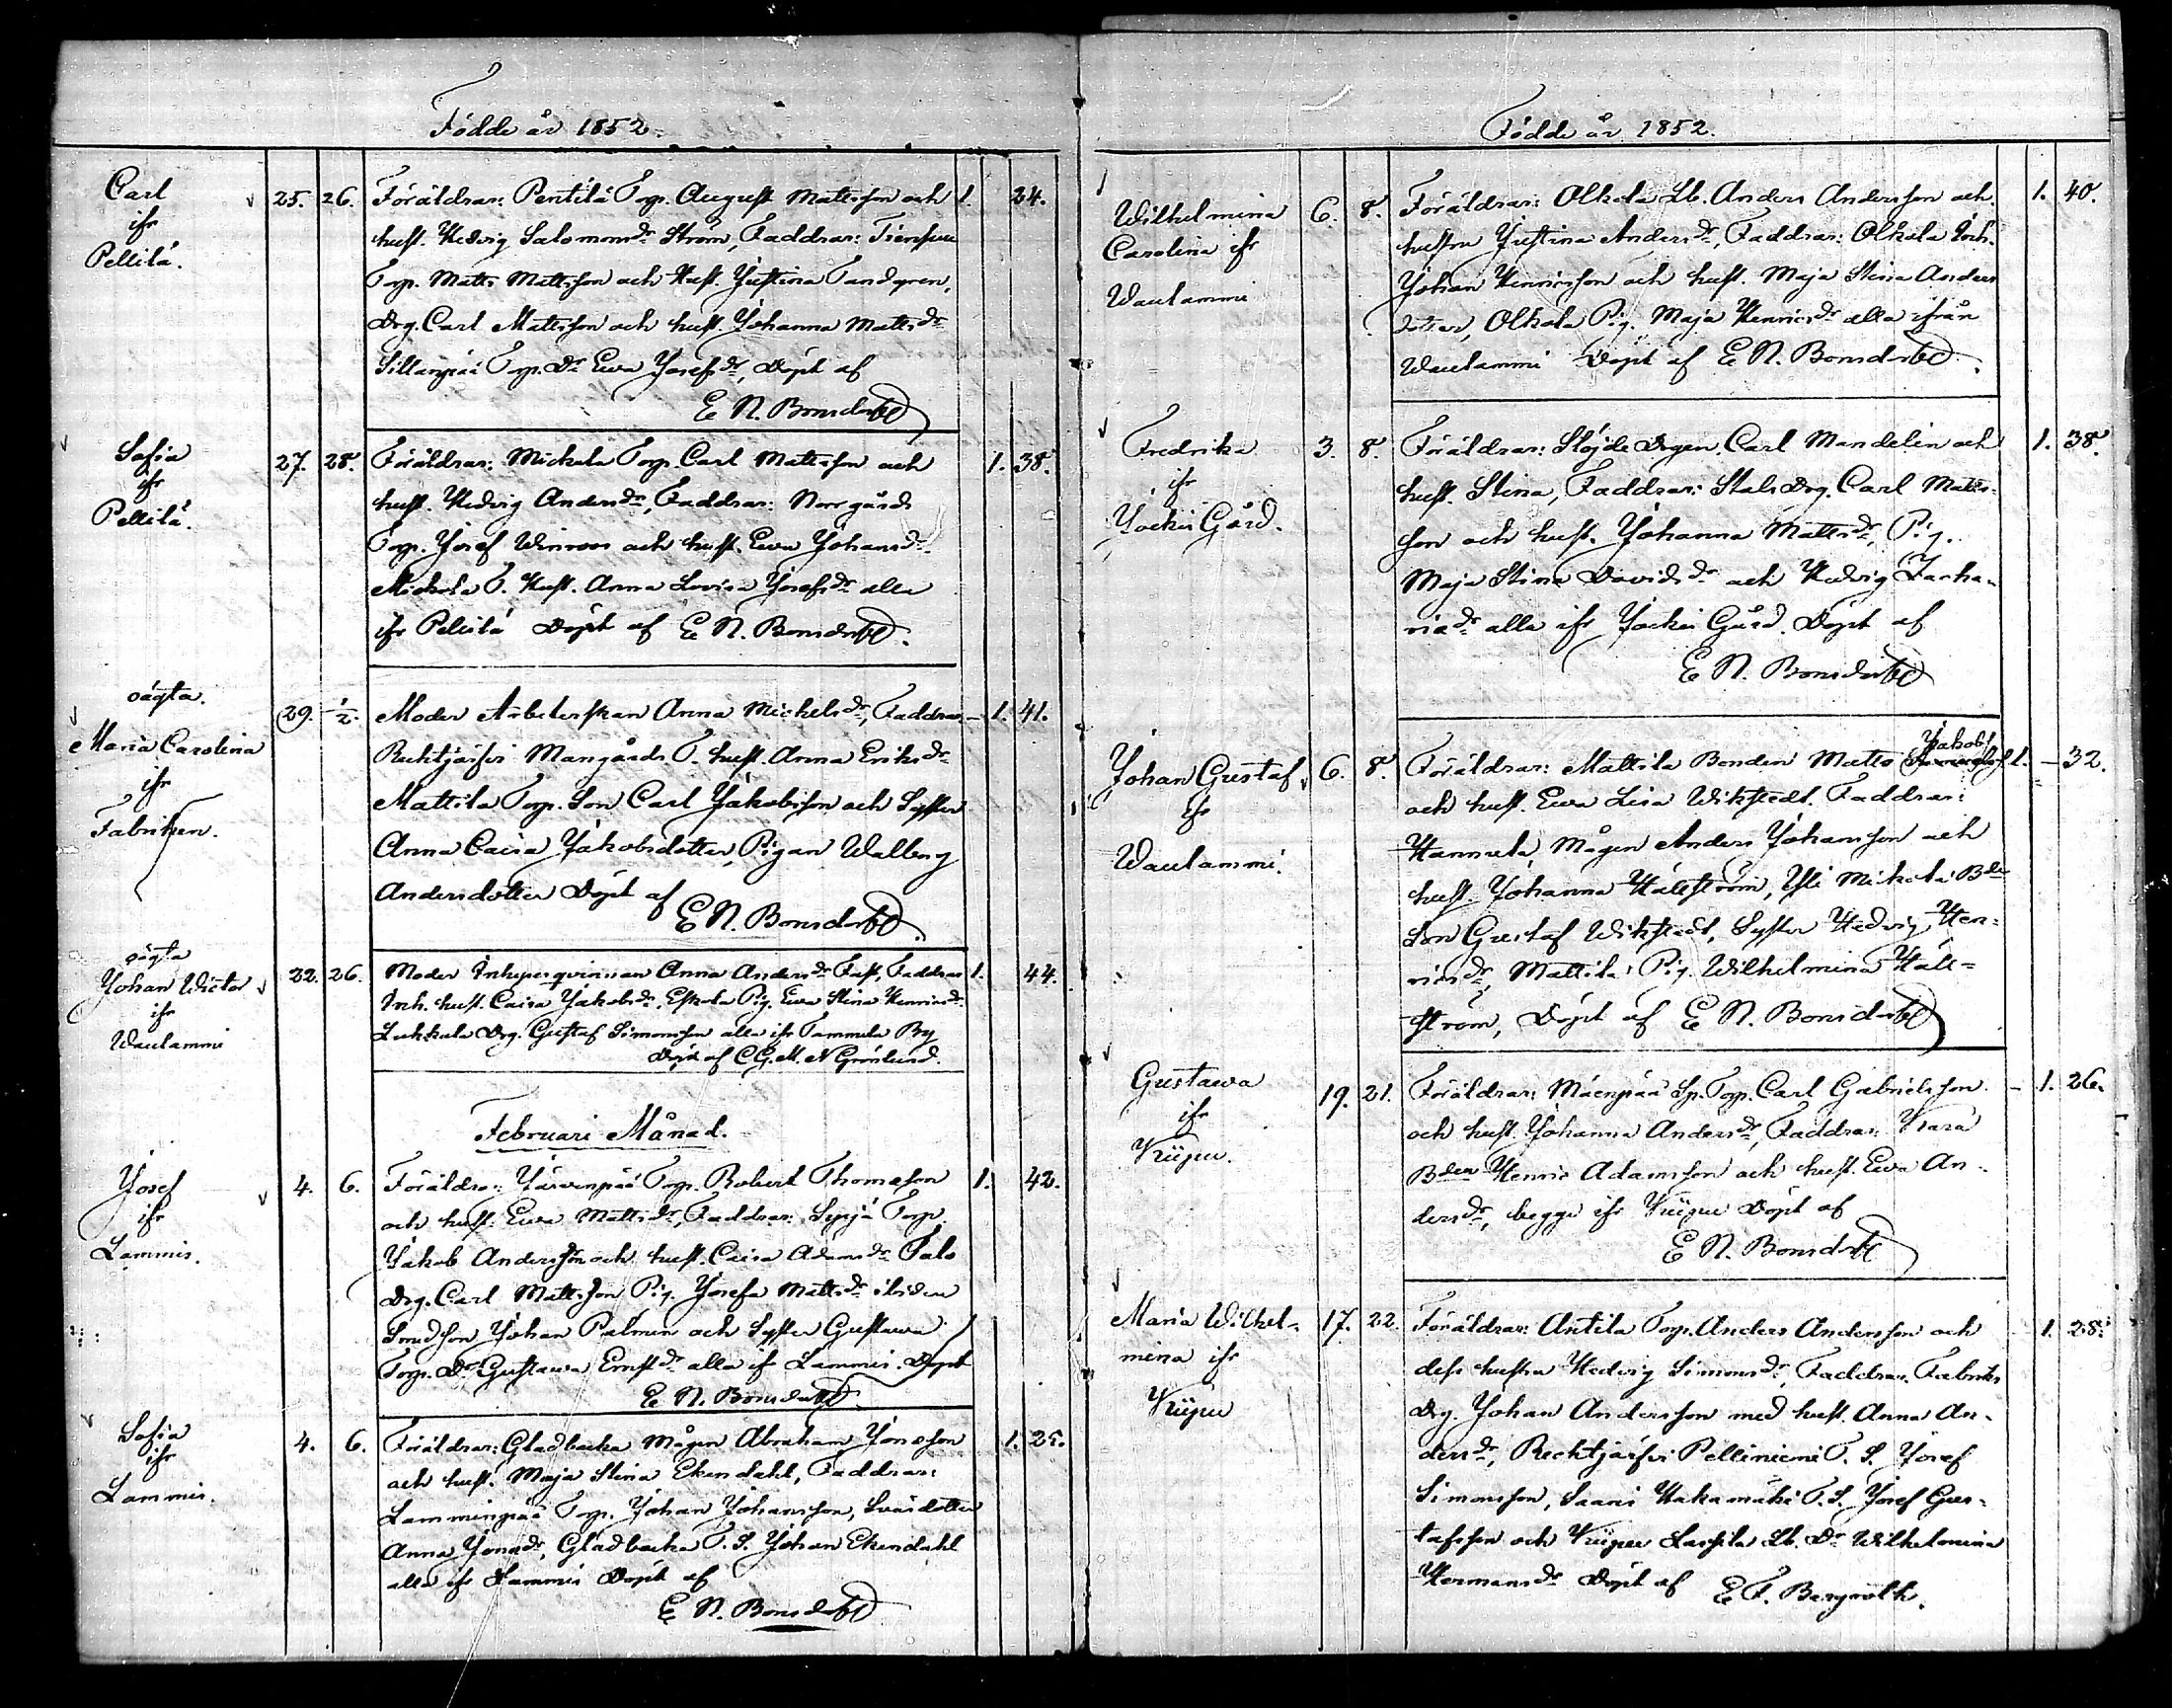 Födde år 1852.
Carl
ifr
Pellilä.
25. 26.
Föräldrar: Pentilä Torp. August Mattsson och 1. 24.
hust. Hedvig Salomonsdr Ström, Faddrar:
Torp. Matts Mattsson och Hust. Justina Tandgren,
Drg. Carl Mattsson och hust. Johanna Mattsdr
Sillanpää Torp. Dr Ewa Josefsdr, Döpt af
E N. Bonsdorff
Sofia
ifr
Pellilä.
27. 28.
Föräldrar: Mickola Torp. Carl Mattsson och 1. 38.
hust. Hedvig Andersdr, Faddrar: Norrgårds
Torp. Josef och hust. Ewa Johansdr
Mickola T. Hust. Anna Lovisa Josefsdr alla
ifr Pellilä Döpt af E N. Bonsdorff.
oägta.
Maria Carolina
ifr
Fabriken.
29. 1/2.
Moder Arbeterskan Anna Michelsdr, Faddrar 1. 41.
Rehtijärfvi Mangårds T. hust. Anna Eriksdr
Mattila Torp. Son Carl Jakobsson och Syster
Anna Caisa Jakobsdotter, Pigan Walborg
Andersdotter Döpt af
E N. Bonsdorff.
oägta
Johan Victor
ifr
Waulammi
22. 26.
Moder Inhyseqvinnan Anna Andersdr Fast, Faddrar 1. 44.
Inh. hust. Caisa Jakobsdr, Eskola Pig. Ewa Stina Henricsdr
Lukkala Drg. Gustaf Simonsson alla ifr Tammela By
Döpt af C G. M. N Grönlund.
Februari Månad.
Josef
ifr
Lammis.
4. 6.
Föräldrar: Järvenpää Torp. Robert Thomasson 1. 42.
och hust. Ewa Mattsdr, Faddrar: Seppä Torp.
Jakob Andersson och hust. Caisa Adamsdr Talo
Drg. Carl Mattsson Pig. Josefa Mattsdr
Smedson Johan Palmen och Syster Gustawa
Torp. Dr Gustawa Ernstdr alla if Lammis. Döpt
E N. Bonsdorff
Sofia
ifr
Lammis.
4. 6.
Föräldrar: Gladbacka Mågen Abraham Jonasson 1. 25.
och hust. Maja Stina Ekendahl, Faddrar:
Lamminpää Torp. Johan Johansson, Svärdotter
Anna Jonasdr, Gladbacka T. S. Johan Ekendahl
alla ifr Lammis Döpt af
E N. Bonsdorff
Födde år 1852.
Wilhelmina
Carolina ifr
Waulammi
6. 8.
Föräldrar: Olkola Lb. Anders Andersson och 1. 40.
hustru Justina Andersdr, Faddrar: Olkola Inh.
Johan Henricsson och hust. Maja Stina Anders
dotter, Olkola Pig. Maja Henricsdr alla ifrån
Waulammi Döpt af E N. Bonsdorff.
Fredrika
if
Jockis Gård.
3. 8.
Föräldrar: Slöjde Drgen Carl Mandelin och 1. 38.
hust. Stina, Faddrar: Stals Drg. Carl Matts-
son och hust. Johanna Mattsdr, Pig.
Maja Stina Davidsdr och Hedvig Zacha-
riadr alla ifr Jockis Gård. Döpt af
E N. Bonsdorff
Johan Gustaf
ifr
Waulammi.
6. 8.
Föräldrar: Mattila Bonden Matts Jakobs 1. 32.
och hust. Ewa Lisa Wikstedt. Faddrar:
Hannula Mågen Anders Johansson och
hust. Johanna Hällström, Yli Mikola Bde
Son Gustaf Wikstedt, Syster Hedvig Hen-
ricsdr, Mattila Pig. Wilhelmina Häll-
ström, Döpt af E N. Bonsdorff
Gustawa
ifr
Kujpu.
19. 21.
Föräldrar: Mäenpää Sp. Torp. Carl Gabrielsson 1. 26.
och hust. Johanna Andersdr, Faddrar: Kara
Bden Henric Adamsson och hust. Ewa An-
dersdr, begge ifr Kujpu Döpt af
E N. Bonsdorff
Maria Wilhel-
mina ifr
Kujpu
17. 22.
Föräldrar: Antila Torp. Anders Andersson och 1. 28.
dess hustru Hedvig Simonsdr, Faddrar: Fabriks
Drg. Johan Andersson med hust. Anna An-
dersdr, Rechtjärfvi Pelliniemi T. S. Josef
Simonsson, Saari Hakamäki T. S. Josef Gus-
tafsson och Kujpu Lassila Lb. Dr Wilhelmina
Hermansdr Döpt af E F. Bergroth.